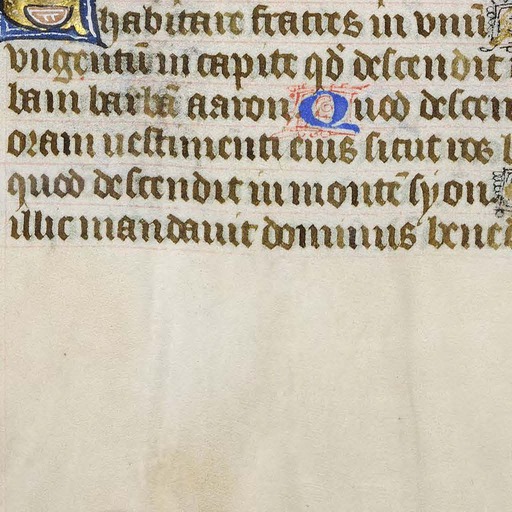 habitare fratres in vnū
vngentum in capite qđ descendit
bam barbā aaron Quod descen
oram uestimenti eius sicut ros
quod descendit in montē syon
illic mandauit dominus bened